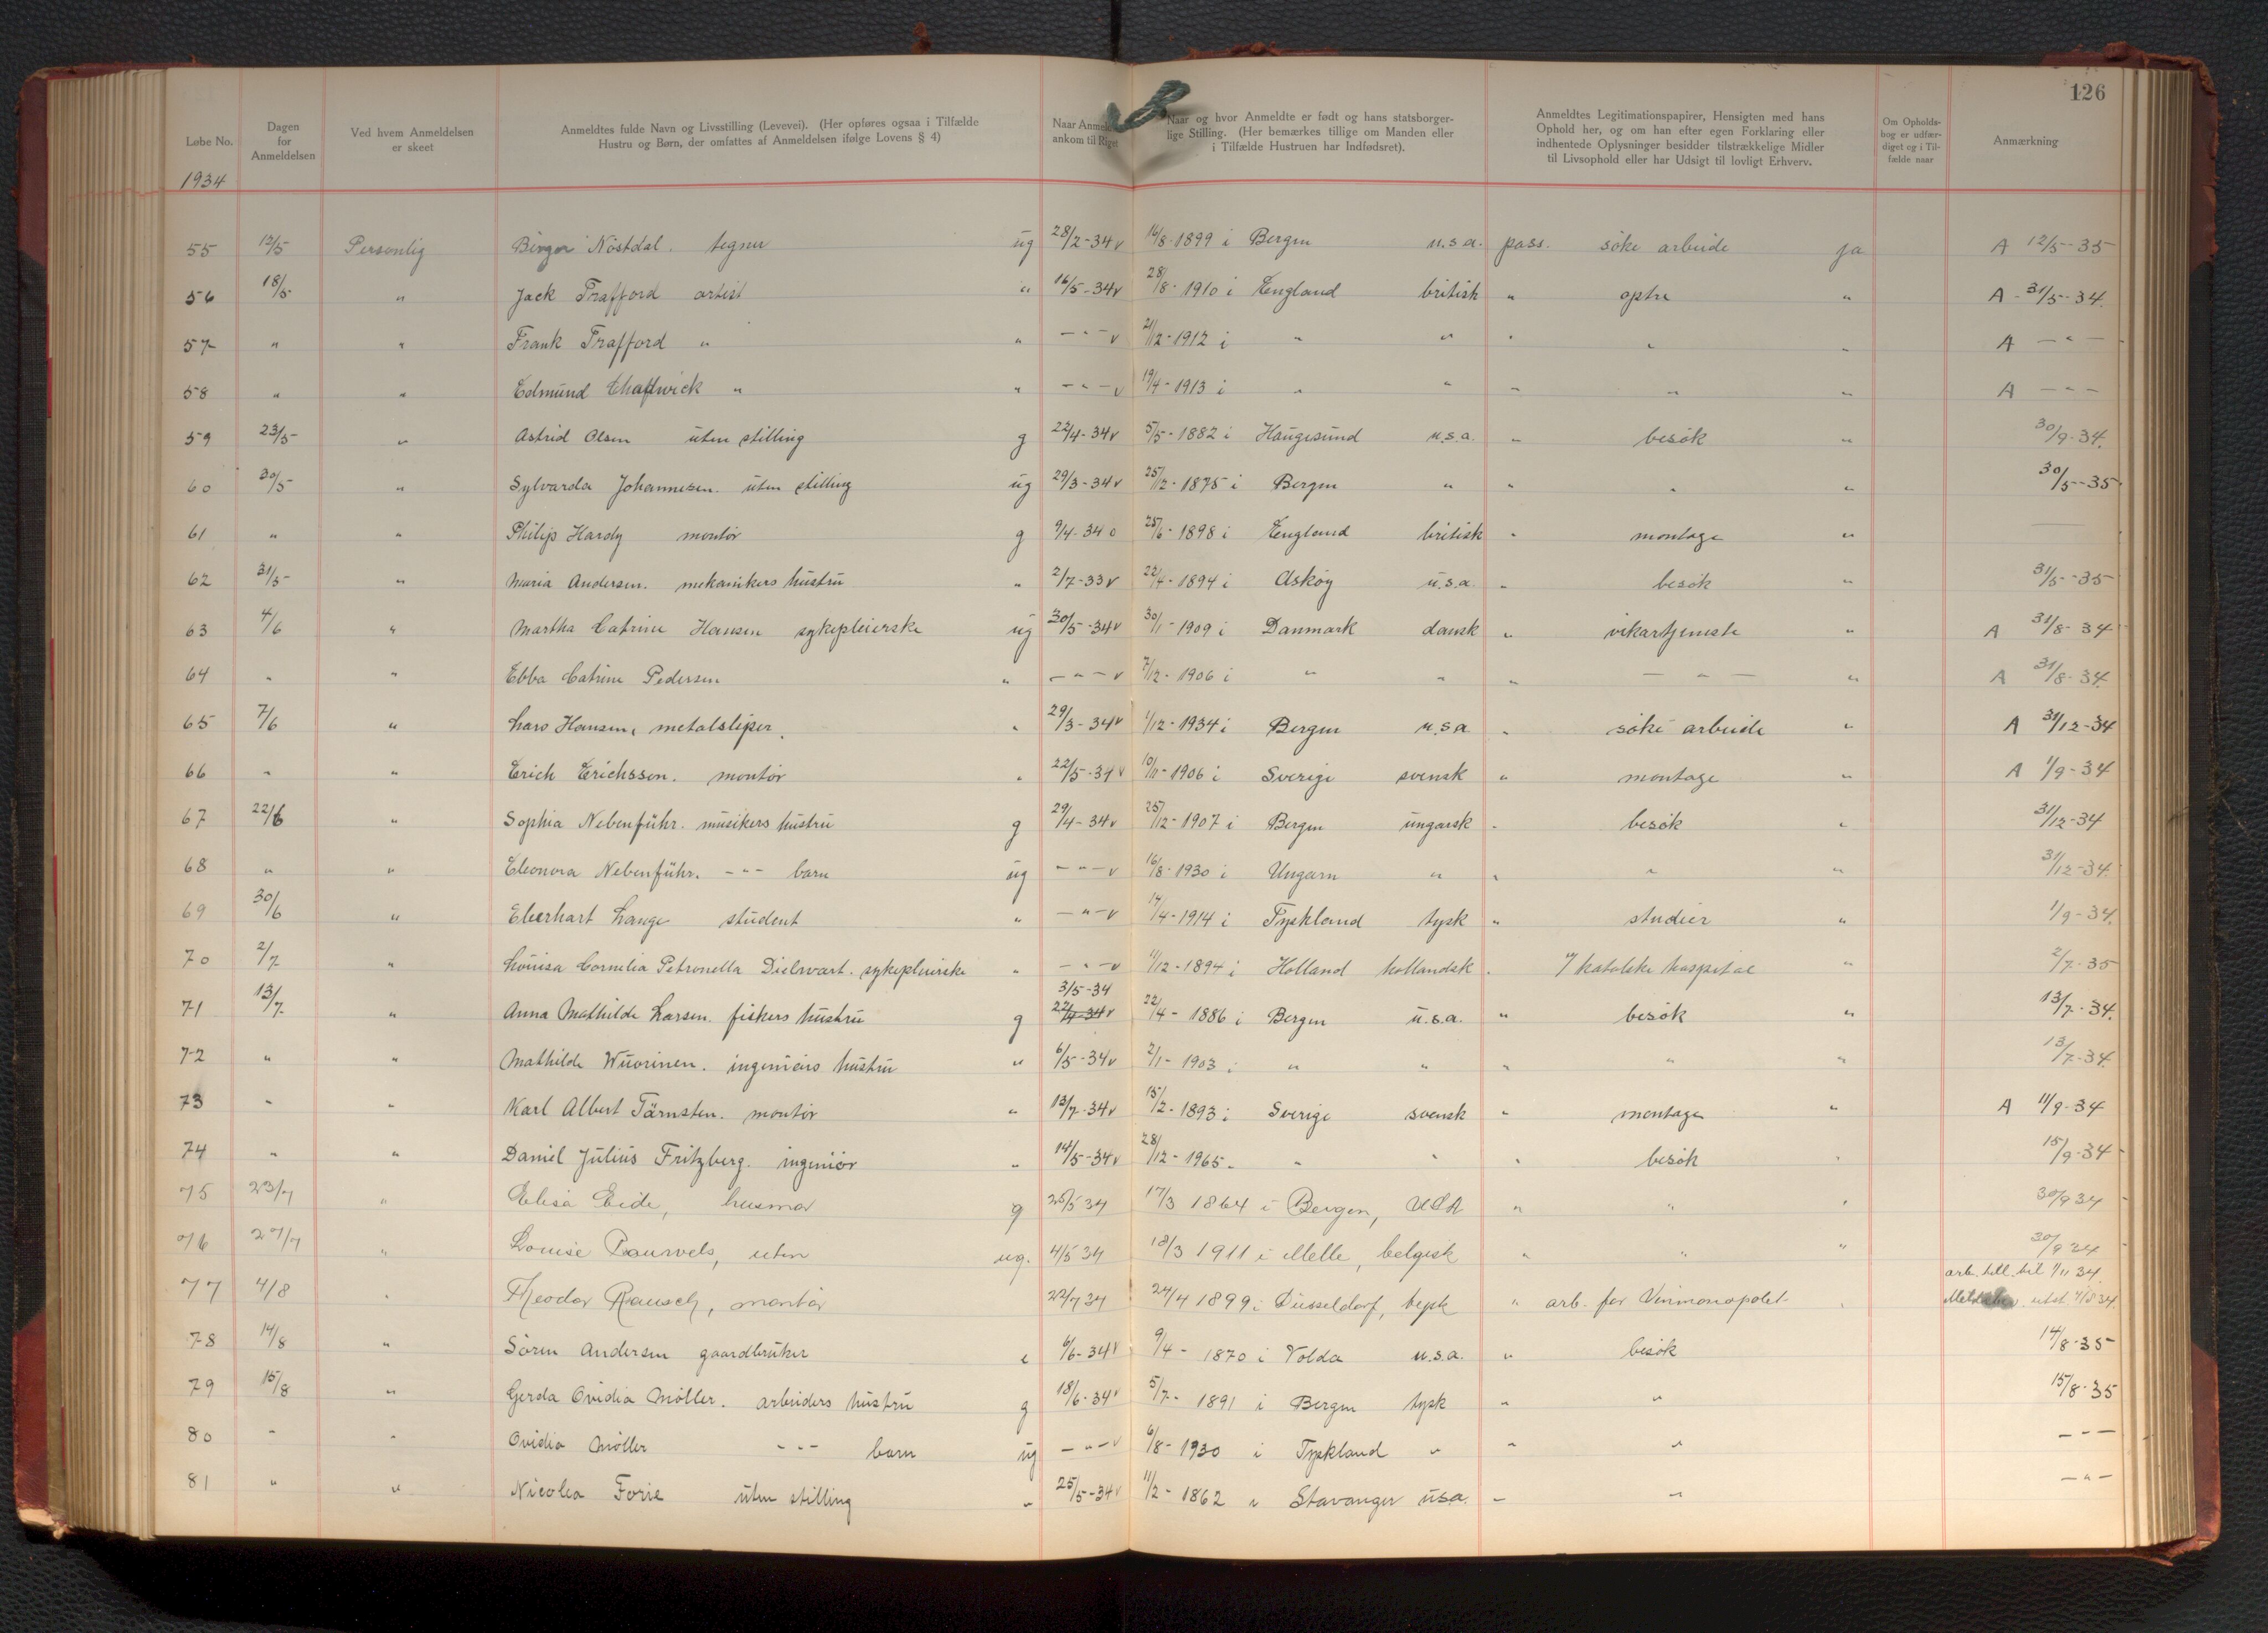 126
Løbe No.
Dagen for Anmeldelsen
Ved hvem Anmeldelsen er skeet
Anmeldtes fulde Navn og Livsstilling (Levevei). (Her opføres ogsaa i Tilfælde Hustru og Børn, der omfattes af Anmeldelsen ifølge Lovens § 4)
Naar Anmeldte ankom til Riget
Naar og hvor Anmeldte er født og hans statsborgerlige Stilling. (Her bemærkes tillige om Manden eller i Tilfælde Hustruen har Indfødsret).
Anmeldtes Legitimationspapirer, Hensigten med hans Ophold her, og om han efter egen Forklaring eller indhentede Oplysninger besidder tilstrækkelige Midler til Livsophold eller har Udsigt til lovligt Erhverv.
Om Opholdsbog er udfærdiget og i Tilfælde naar
Anmærkning
1934
55 12/5 Personlig Birger Nöstdal. tegner ug 28/2-34 v 16/8-1899 i Bergen u.s.a. pass. söke arbeide ja A 12/5-35
56 18/5 " Jack Trafford artist " 16/5-34 v 28/8-1910 i England britisk " optre " A-31/5-34.
57 " " Frank Trafford " " - " - v 21/12-1912 i " " " " " A - " -
58 " " Edmund Chadwick " " - " - v 19/4-1913 i " " " " " A - " -
59 23/5- " Astrid Olsen uten stilling g 22/4-34 v 5/5-1882 i Haugesund u.s.a. " besök " 30/9-34.
60 30/5- " Sylvarda Johannesen. uten stilling ug 29/3-34 v 25/12-1875 i Bergen " " " " 30/5-35
61 " " Philip Hardy montör g 9/4-34 o 25/6-1898 i England britisk " montage "
62 31/5- " Maria Andersen. mekanikers hustru " 2/7-33 v 22/4-1894 i Asköy u.s.a. " besök " 31/5-35
63 4/6 " Martha Catrine Hansen sykepleierske ug 30/5-34 v 30/1-1909 i Danmark dansk " vikartjeneste " A 31/8-34
64 " " Ebba Catrine Pedersen " - " - v 7/12-1906 i " " " - " - " A 31/8-34.
65 7/6 " Lars Hansen, metalsliper. " 29/3-34 v 1/12-1934 i Bergen u.s.a " söke arbeide " A 31/12-34
66 " " Erich Erichsson. montör " 22/5-34 v 10/11-1906 i Sverige svensk " montage " A 1/9-34
67 22/6 " Sophia Nebenführ. musikers hustru g 29/4-34 v 25/12-1907 i Bergen ungarsk " besök " 31/12-34
68 " " Eleonora Nebenführ. - " - barn ug - " - v 16/8-1930 i Ungarn " " " " 31/12-34.
69 30/6 " Eberhart Lange student " - " - v 14/4-1914 i Tyskland tysk " studier " 1/9-34.
70 2/7 " Louisa Cornelia Petronella Dielwart. sykepleierske " - " - v 11/12-1894 i Holland hollandsk " v/ katolske hospital " 2/7-35
3/5-34
71 13/7 " Anna Mathilde Larsen. fiskers hustru g 22/4-34 v 22/4-1886 i Bergen u.s.a. " besök " 13/7-34.
72 " " Mathilde Wuorinen. ingeniörs hustru " 6/5-34 v 2/1-1903 i " " " " " 13/7-34.
73 " " Karl Albert Tärnsten. montör " 13/7-34 v 15/2-1893 i Sverige svensk " montage " A 11/9-34
74 " " Daniel Julius Fritzberg. ingeniör " 14/5-34 v 28/12-1965 " " " " besök " 15/9-34
75 23/7 " Elisa Eide, husmor g 25/5 34 17/3 1864 i Bergen, USA " " " 30/9 34
76 27/7 " Louise Pauwels, uten ug. 4/5 34 18/3 1911 i Melle, belgisk " " " 30/9 34
arb. till. til 1/11 34.
77 4/8 " Theodor Rausch, montör 22/7 34 24/4 1899 i Düsseldorf, tysk " arb. for Vinmonopolet " utst. 4/8 34.
78 14/8 " Sören Andersen gaardbruker e 6/6-34 v 9/4-1870 i Volda u.s.a. " besök 14/8-35
79 15/8 " Gerda Ovidia Möller. arbeiders hustru g 18/6-34 v 5/7-1891 i Bergen tysk " " 15/8-35
80 " " Ovidia Möller - " - barn ug - " - v 6/8-1930 i Tyskland " " " - " -
81 " " Nicolea Forie uten stilling " 25/5-34 v 11/2-1862 " Stavanger u.s.a. " " - " -